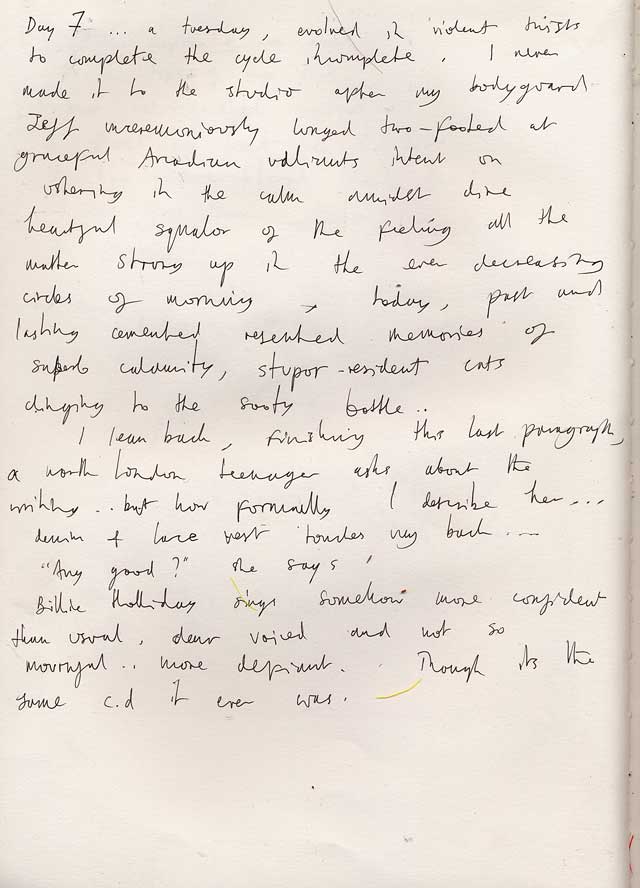 Day 7 ... a tuesday, evolved in violent twists
to complete the cycle incomplete. I never
made it to the studio after my bodyguard
Jeff unceremoniously lunged two-footed at
graceful Arcadian valiants intent on
ushering in the calm amidst dire
beautiful squalor of the feeling all the
matter strong up in the ever decreasing
circles of morning, today, past and
lasting cemented resented memories of
superb calamity, stupor-resident cats
clinging to the sooty bottle..
I lean back, finishing this last paragraph,
a north London teenager asks about the
writing .. but how formally I describe her...
denim + lace vest touches my back ...
"Any good?" she says
Billie Holliday sings somehow more confident
than usual, clear voiced and not so
mournful .. more defiant. Though its the
same c.d it ever was.